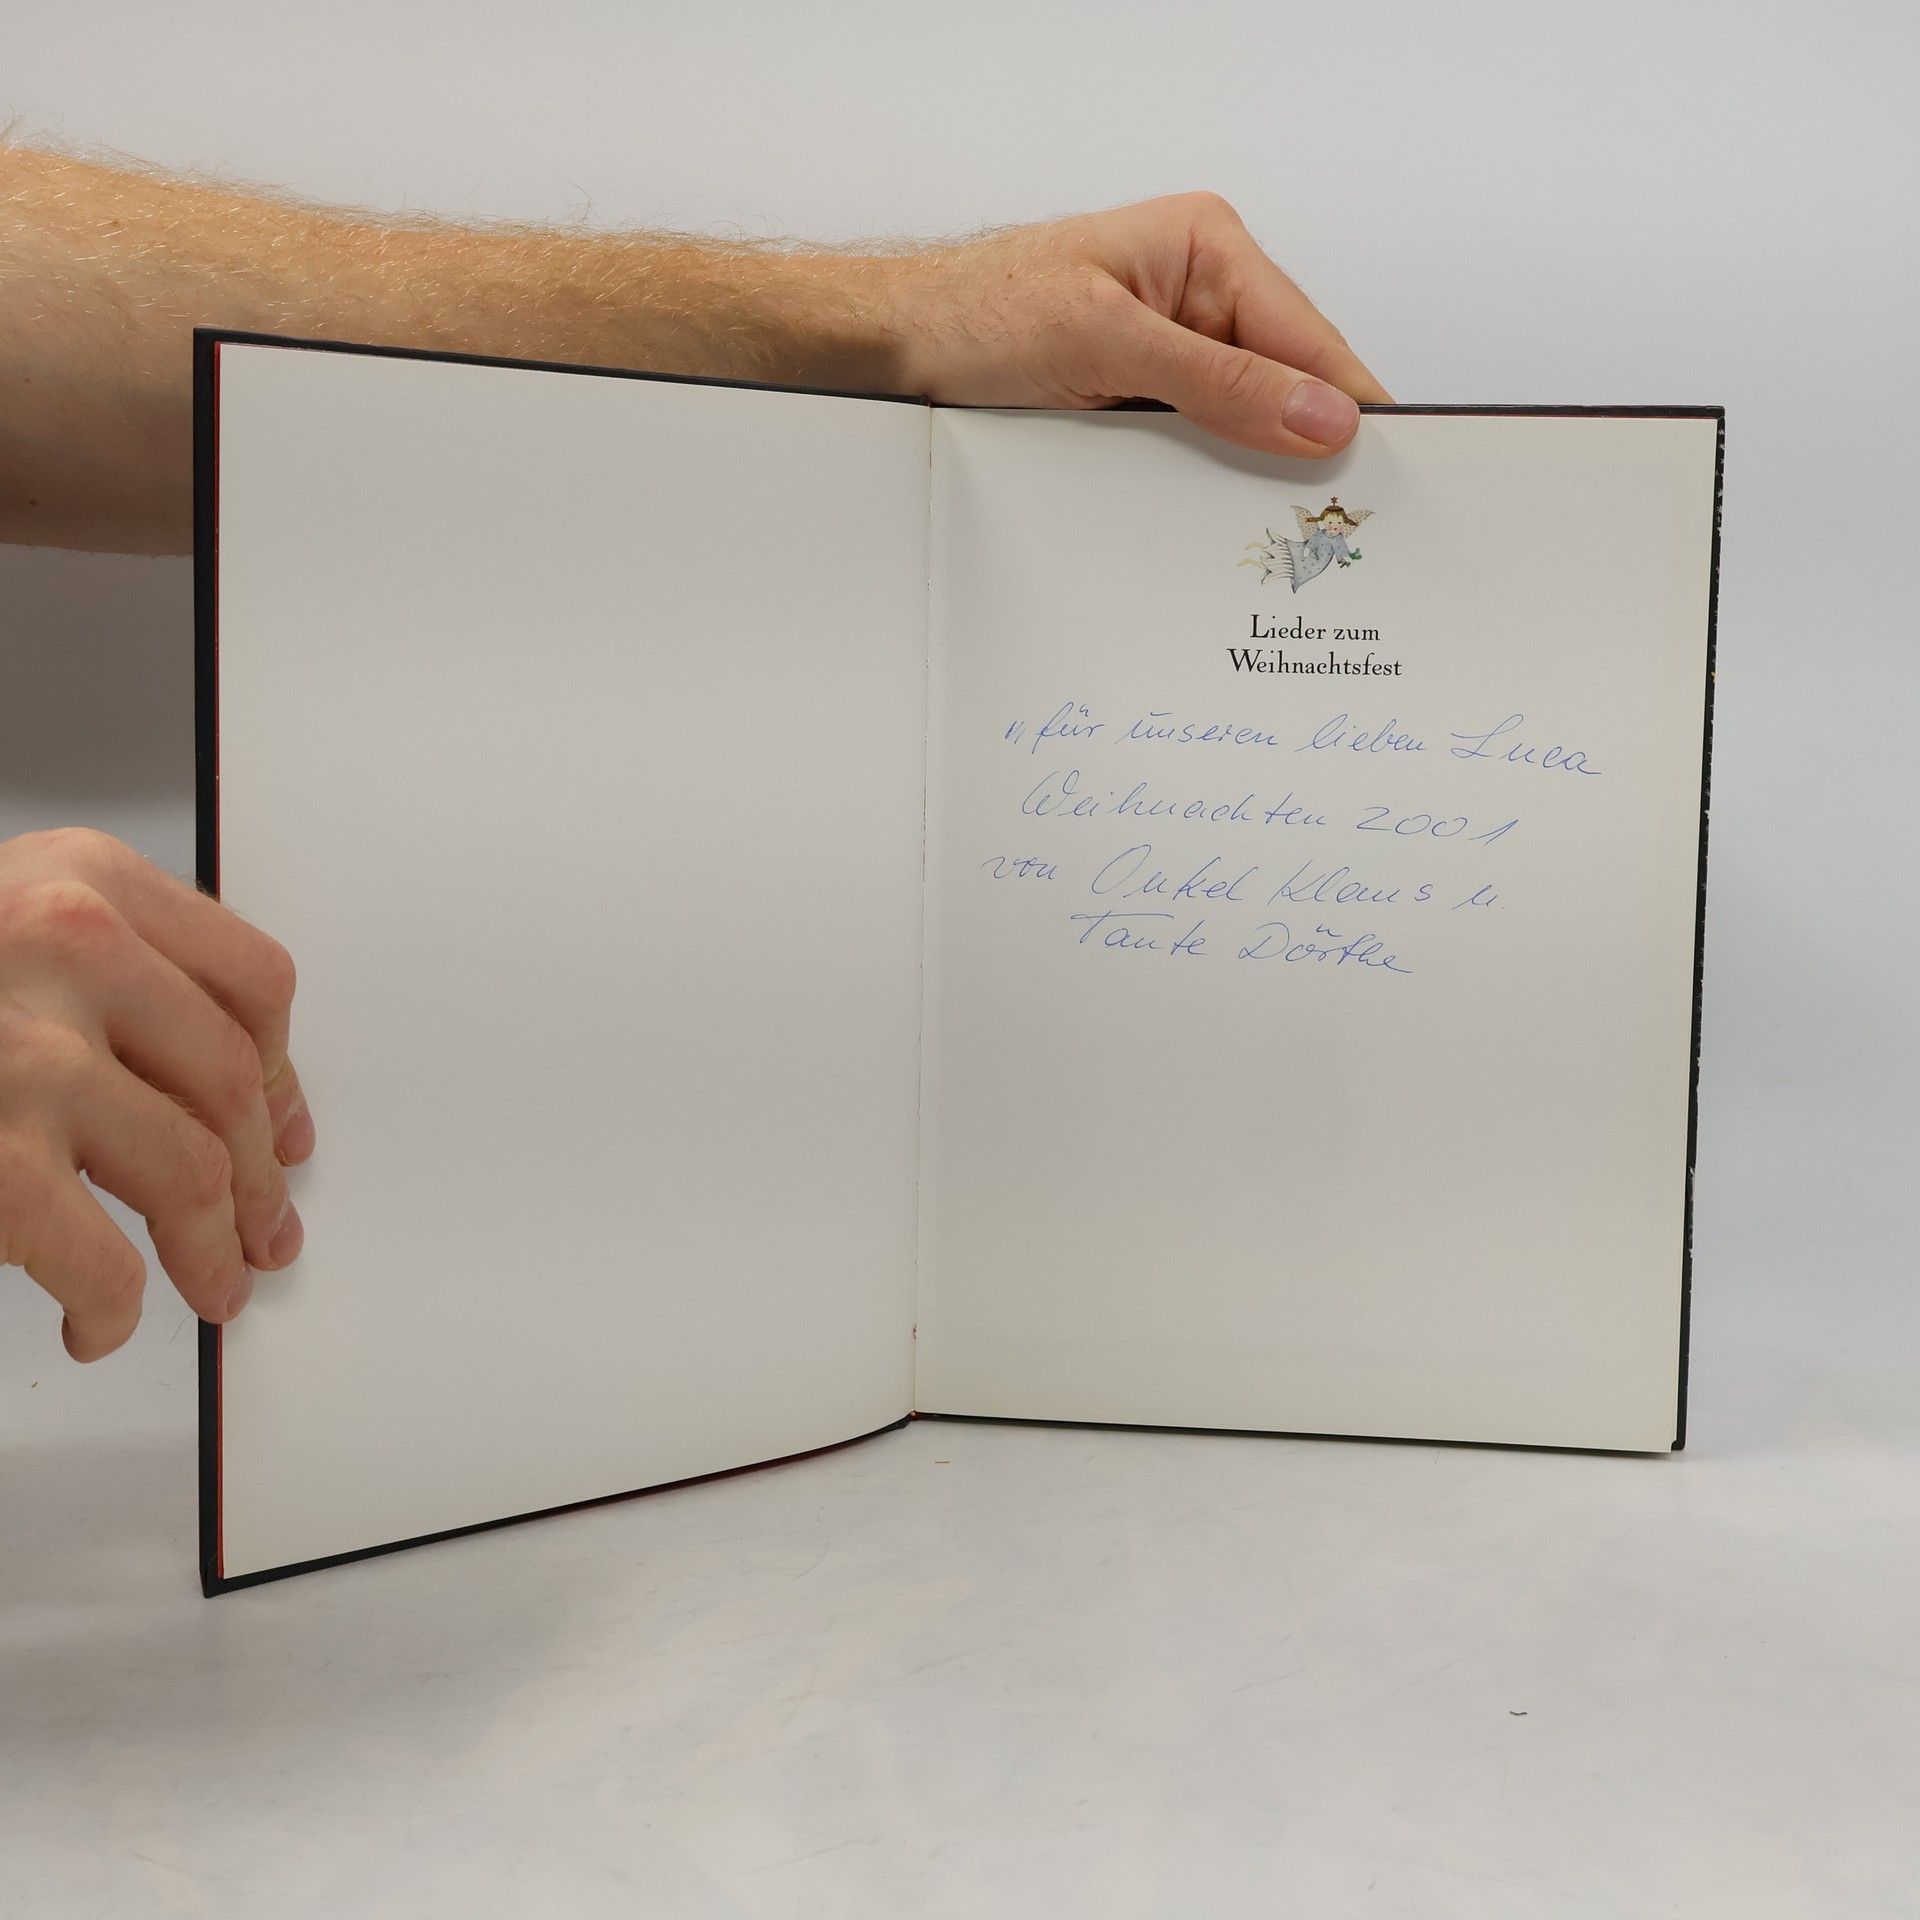 Lieder zum
Weihnachtsfest
„für unseren lieben Luca
Weihnachten 2001
von Onkel Klaus u.
Tante Dörthe